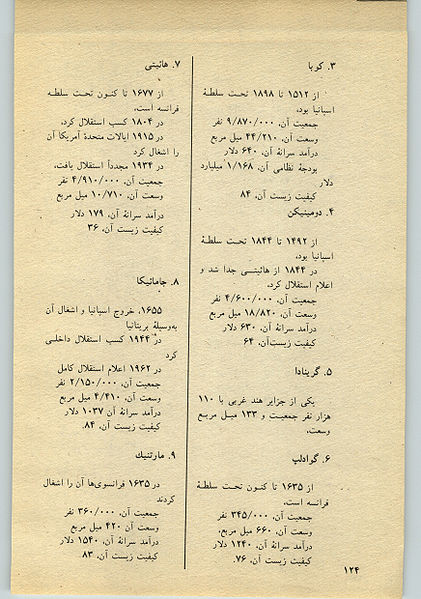 ۳. کوبا
از ۱۵۱۲ تا ۱۸۹۸ تحت سلطهٔ
اسپانیا بود.
جمعیت آن، ۹/۸۷۰/۰۰۰ نفر
وسعت آن، ۴۴/۲۱۰ میل مربع
درآمد سرانهٔ آن، ۶۴۰ دلار
بودجهٔ نظامی آن، ۱/۱۶۸ میلیارد
دلار
کیفیت زیست آن، ۸۴
۴. دومینیکن
از ۱۴۹۲ تا ۱۸۴۴ تحت سلطهٔ
اسپانیا بود.
در ۱۸۴۴ از هائیتی جدا شد و
اعلام استقلال کرد.
جمعیت آن، ۴/۶۰۰/۰۰۰ نفر
وسعت آن، ۱۸/۸۲۰ میل مربع
درآمد سرانهٔ آن، ۶۳۰ دلار
کیفیت زیست‌آن، ۶۴
۵. گرینادا
یکی از جزایر هند غربی با ۱۱۰
هزار نفر جمعیت و ۱۳۳ میل مربع
وسعت.
۶. گوادلپ
از ۱۶۳۵ تا کنون تحت سلطهٔ
فرانسه است.
جمعیت آن، ۳۴۵/۰۰۰ نفر
وسعت آن، ۶۶۰ میل مربع.
درآمد سرانهٔ آن، ۱۲۴۰ دلار
کیفیت زیست آن، ۷۶.
۷. هائیتی
از ۱۶۷۷ تا کنون تحت سلطهٔ
فرانسه است.
در ۱۸۰۴ کسب استقلال کرد.
در ۱۹۱۵ ایالات متحدهٔ آمریکا آن
را اشغال کرد
در ۱۹۳۴ مجدداً استقلال یافت.
جمعیت آن، ۴/۹۱۰/۰۰۰ نفر
وسعت آن، ۱۰/۷۱۰ میل مربع
درآمد سرانهٔ آن، ۱۷۹ دلار
کیفیت زیست آن، ۳۶
۸. جامائیکا
۱۶۵۵، خروج اسپانیا و اشغال آن
به‌وسیلهٔ بریتانیا
در ۱۹۴۴ کسب استقلال داخلی
کرد
در ۱۹۶۲ اعلام استقلال کامل
جمعیت آن، ۲/۱۵۰/۰۰۰ نفر
وسعت آن، ۴/۴۱۰ میل مربع
درآمد سرانهٔ آن ۱۰۳۷ دلار
کیفیت زیست آن، ۸۴.
۹. مارتنیک
در ۱۶۳۵ فرانسوی‌ها آن را اشغال
کردند
جمعیت آن، ۳۶۰/۰۰۰ نفر
وسعت آن ۴۲۰ میل مربع
درآمد سرانهٔ آن، ۱۵۴۰ دلار
کیفیت زیست آن، ۸۳
۱۲۴